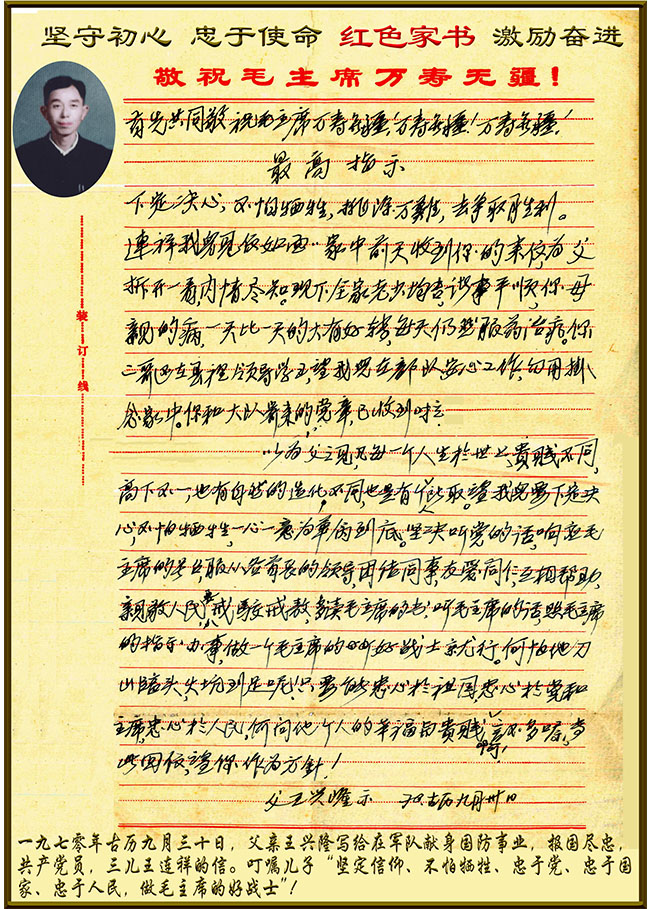 坚守初心 忠于使命 红色家书 激励奋进
敬祝毛主席万寿无疆!
首先共同敬祝毛主席万寿无疆!万寿无疆!万寿无疆!
最高指示
下定决心,不怕牺牲,排除万难,去争取胜利。
连祥我男见仅如面 家中前天收到你的来信,为父
拆开一看,内情尽知。现下全家老少均吉,诸事平顺,你母
亲的病,一天比一天的大有好转,每天仍然服药治疗。你
二哥已在县里领导学习,望我儿在部队安心工作,勿用掛
念家中。你和大队寄来的党章,已收到
以为父之见,凡每一个人生於世上,貴賤不同,
高下不一,也有自然的造化不同,也是有 取。望我儿要下定决
心,不怕牺牲,一心一意为革命到底。坚决听党的话,响应毛
主席的号召,服从各首长的领导,团结同事友爱同仁,互相帮助,
親敬人民,戒驕戒傲,多读毛主席的书,听毛主席的话,照毛主席
的指示办事,做一个毛主席的好战士京尤行。何怕他刀
山 头,火坑到足呢!只要能忠心於祖国忠心於党和
主席,忠心於人民,何问他个人的幸福与貴賤 多 ,当
此回信,望你作为方針!
父王兴隆示 古历九月卅日
装订线
一九七零年古历九月三十日,父亲王兴隆写给在军队献身国防事业,报国尽忠,
共产党员,三儿王连祥的信。叮嘱儿子“坚定信仰、不怕牺牲、忠于党、忠于国
家、忠于人民,做毛主席的好战士”!